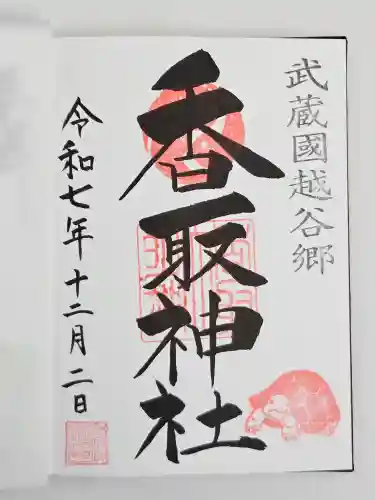 武蔵國越谷郷
香取神社
令和七年十二月二日